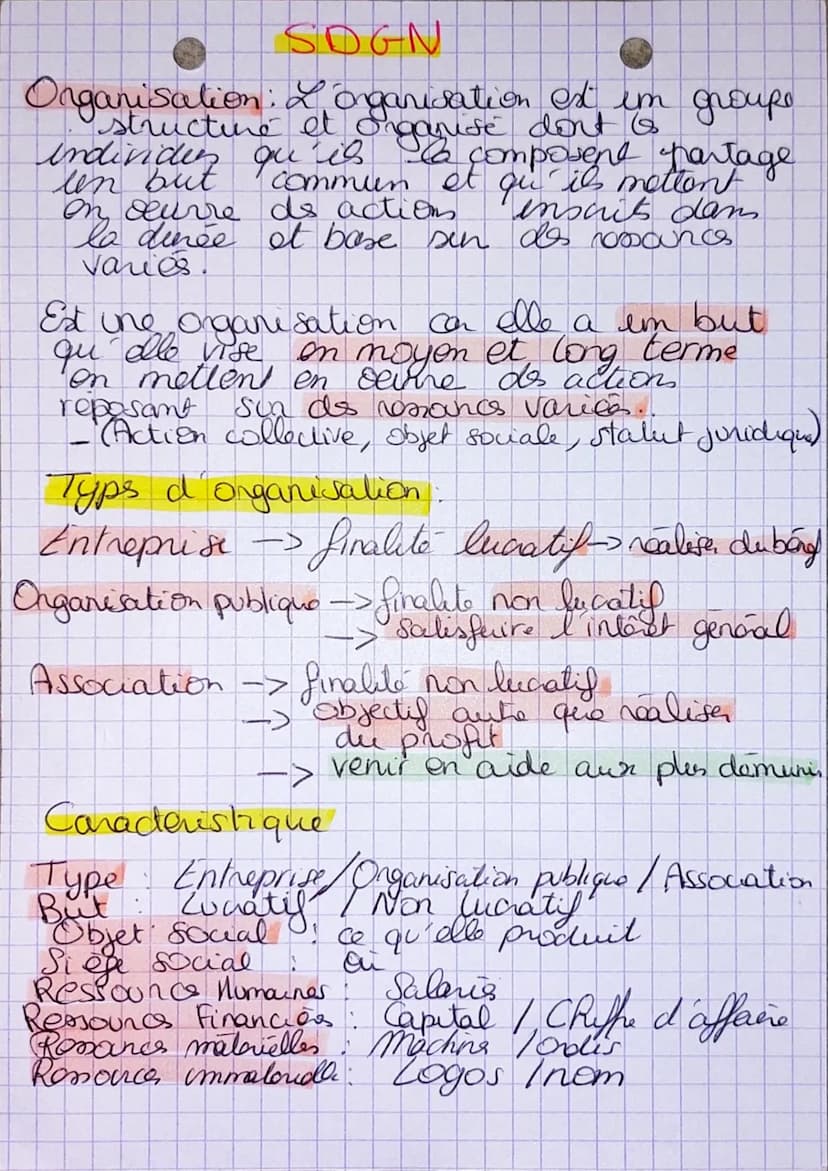 SDGN
Organisation : L'organisation est un groupe
structuré et organisé dont les
individus qu'ils la composent partage
un but commun et qu'ils mettent
en oeuvre des actions inscrits dans
la durée et base sur des ressources
variés.
Est une organisation car elle a un but
qu'elle vise en moyen et long terme
en mettent en oeuvre des actions
reposant sur des ressources variées.
- (Action collective, objet sociale, statut juridique)
Types d'organisation :
Entreprise -> finalité lucratif -> réaliser du bénéf
Organisation publique -> finalité non lucatif
-> satisfaire l'intérêt général
Association -> finalité non lucratif
-> objectif autre que réaliser
du profit
-> venir en aide aux plus démunis
Caracteristique
Type : Entreprise / Organisation publique / Association
But : Lucratif / Non lucratif
Objet social : ce qu'elle produit
Siège social : où
Ressources Humaines : Salariés
Ressources Financières : Capital / Chiffre d'affaire
Ressources matérielles : Machine / ordis
Ressources immatérielle : Logos / nom